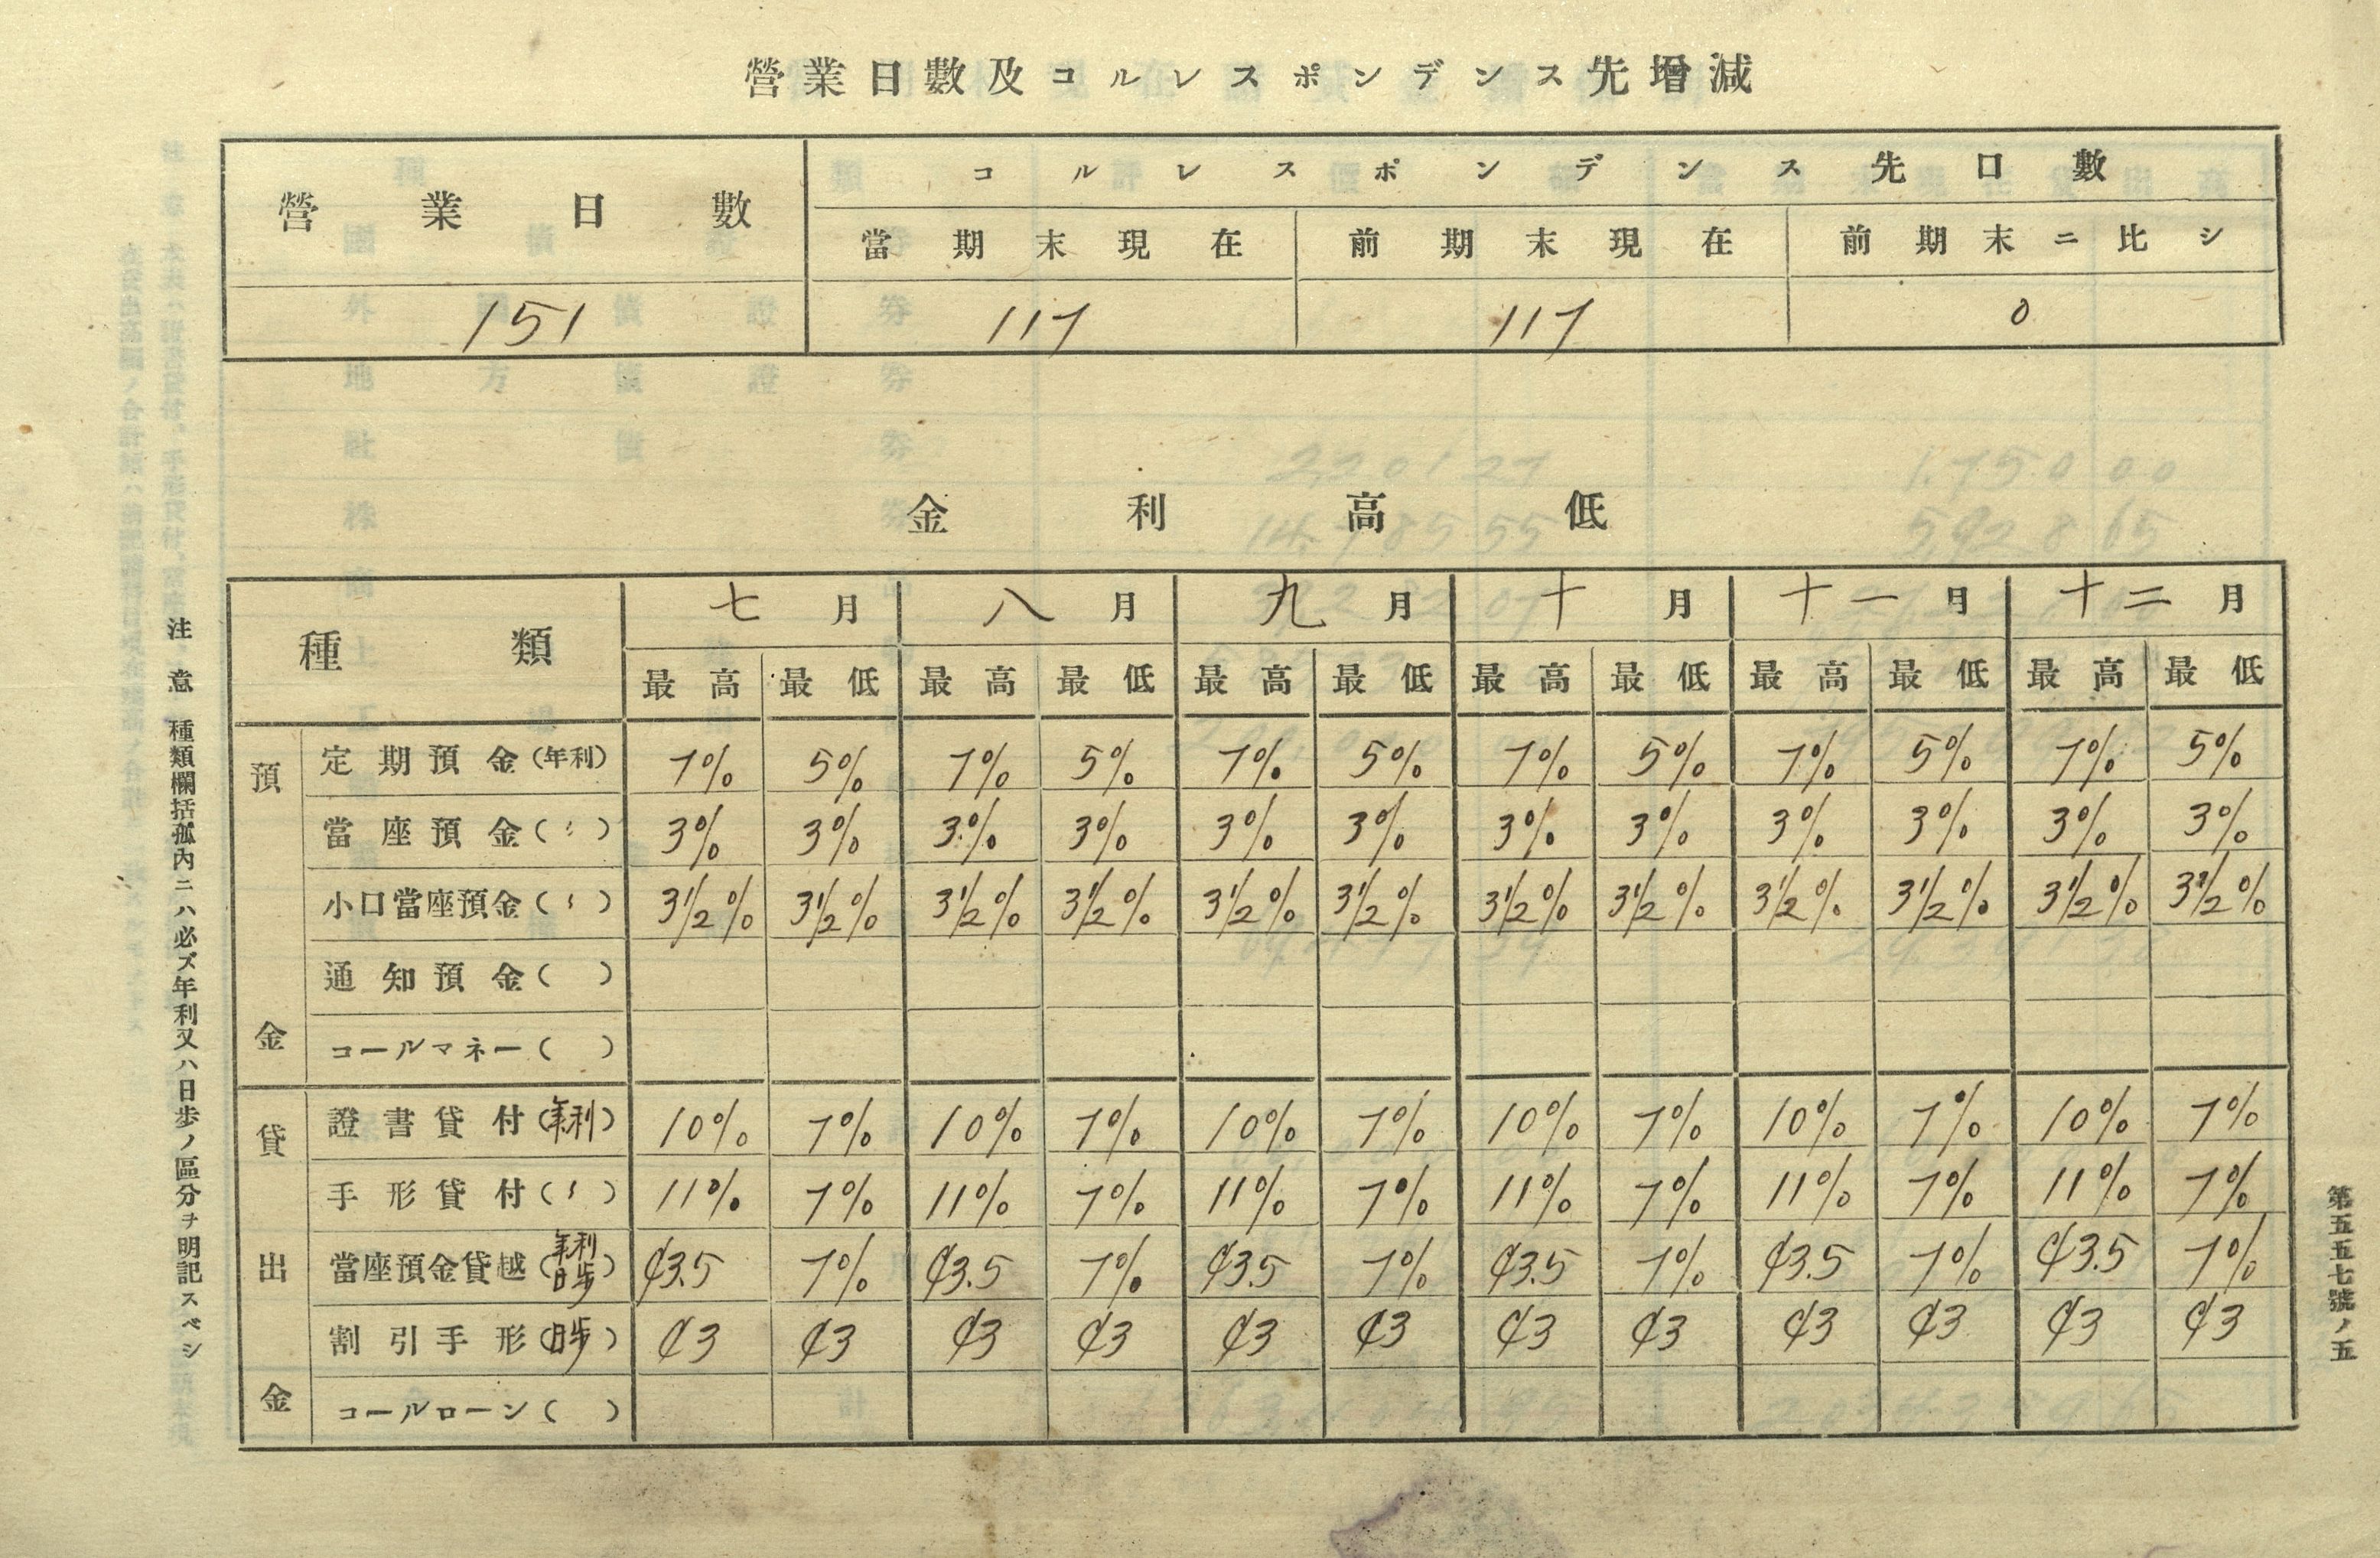 營業日數及コルレスポンデンス先增減
營業日數 コルレスポンデンス先口數
當期末現在 前期末現在 前期末ニ比シ
151 117 117 0
金利高低
種類 七月 八月 九月 十月 十一月 十二月
最高 最低 最高 最低 最高 最低 最高 最低 最高 最低 最高 最低
預金
定期預金(年利) 7% 5% 7% 5% 7% 5% 7% 5% 7% 5% 7% 5%
當座預金(〃) 3% 3% 3% 3% 3% 3% 3% 3% 3% 3% 3% 3%
小口當座預金(〃) 3½% 3½% 3½% 3½% 3½% 3½% 3½% 3½% 3½% 3½% 3½% 3½%
通知預金( )
コールマネー( )
貸出金
證書貸付(年利) 10% 7% 10% 7% 10% 7% 10% 7% 10% 7% 10% 7%
手形貸付(〃) 11% 7% 11% 7% 11% 7% 11% 7% 11% 7% 11% 7%
當座預金貸越(年利日歩) ¢3.5 7% ¢3.5 7% ¢3.5 7% ¢3.5 7% ¢3.5 7% ¢3.5 7%
割引手形(日歩) ¢3 ¢3 ¢3 ¢3 ¢3 ¢3 ¢3 ¢3 ¢3 ¢3 ¢3 ¢3
コールローン( )
注意 種類欄括孤內ニハ必ズ年利又ハ日歩ノ區分ヲ明記スベシ
第五五七號ノ五